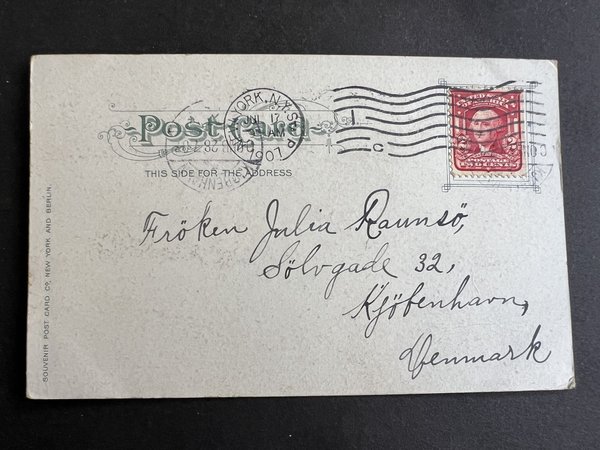 Post Card
THIS SIDE FOR THE ADDRESS
YORK, N.Y.
17
AM
1907
C
POSTAGE
TWO CENTS
Fröken Julia Raunsö,
Sölvgade 32,
Kjöbenhavn,
Denmark
SOUVENIR POST CARD CO. NEW YORK AND BERLIN.